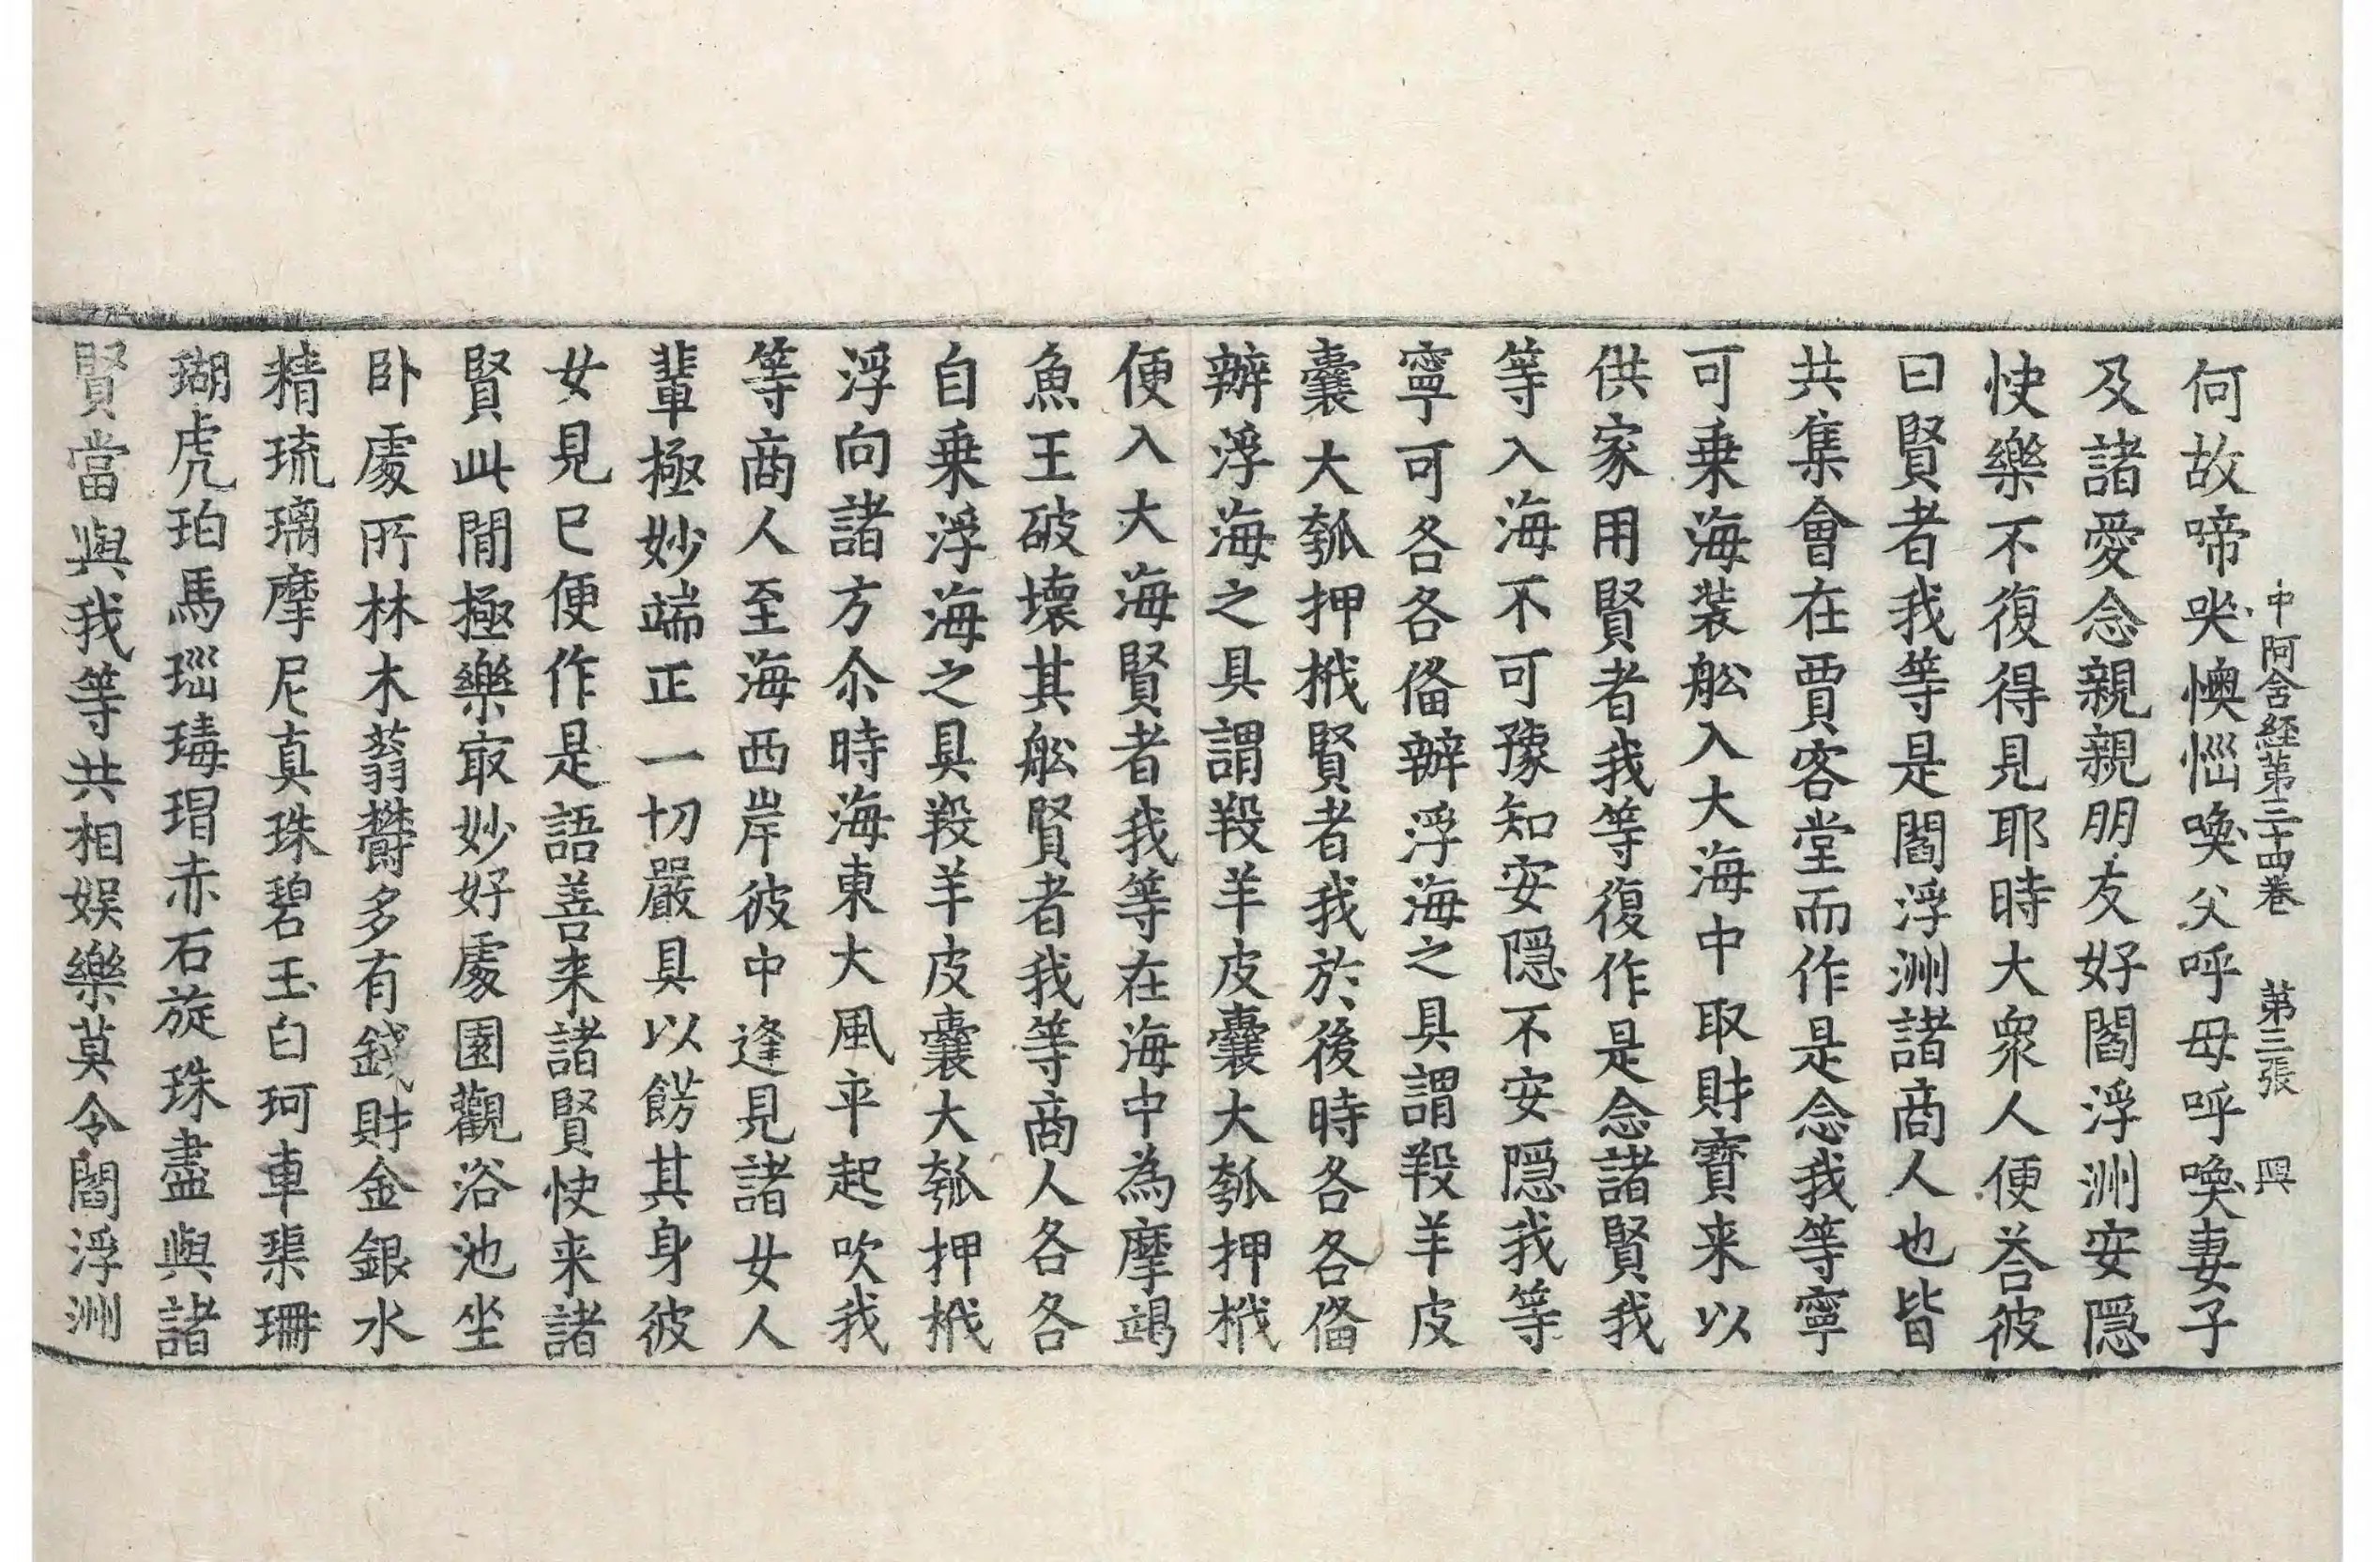 中阿含経第三十四巻　第三張　興
何故啼哭懊惱喚父呼母呼喚妻子
及諸愛念親親朋友好閻浮洲安隱
快樂不復得見耶時大衆人便荅彼
曰賢者我等是閻浮洲諸商人也皆
共集會在賈客堂而作是念我等寧
可乗海装舩入大海中取財寳来以
供家用賢者我等復作是念諸賢我
等入海不可豫知安隠不安隠我等
寧可各各俻辦浮海之具謂羖羊皮
囊大瓠押栰賢者我於後時各各俻
辦浮海之具謂羖羊皮囊大瓠押栰
便入大海賢者我等在海中為摩竭
魚王破壞其舩賢者我等商人各各
自乗浮海之具羖羊皮囊大瓠押栰
浮向諸方尒時海東大風卒起吹我
等商人至海西岸彼中逢見諸女人
輩極妙端正一切嚴具以餝其身彼
女見已便作是語善来諸賢快来諸
賢此間極樂冣妙好處園觀浴池坐
卧處所林木蓊欝多有錢財金銀水
精琉璃摩尼真珠碧玉白珂車璖珊
瑚虎珀馬瑙瑇瑁赤石旋珠盡與諸
賢當與我等共相娯樂莫令閻浮洲